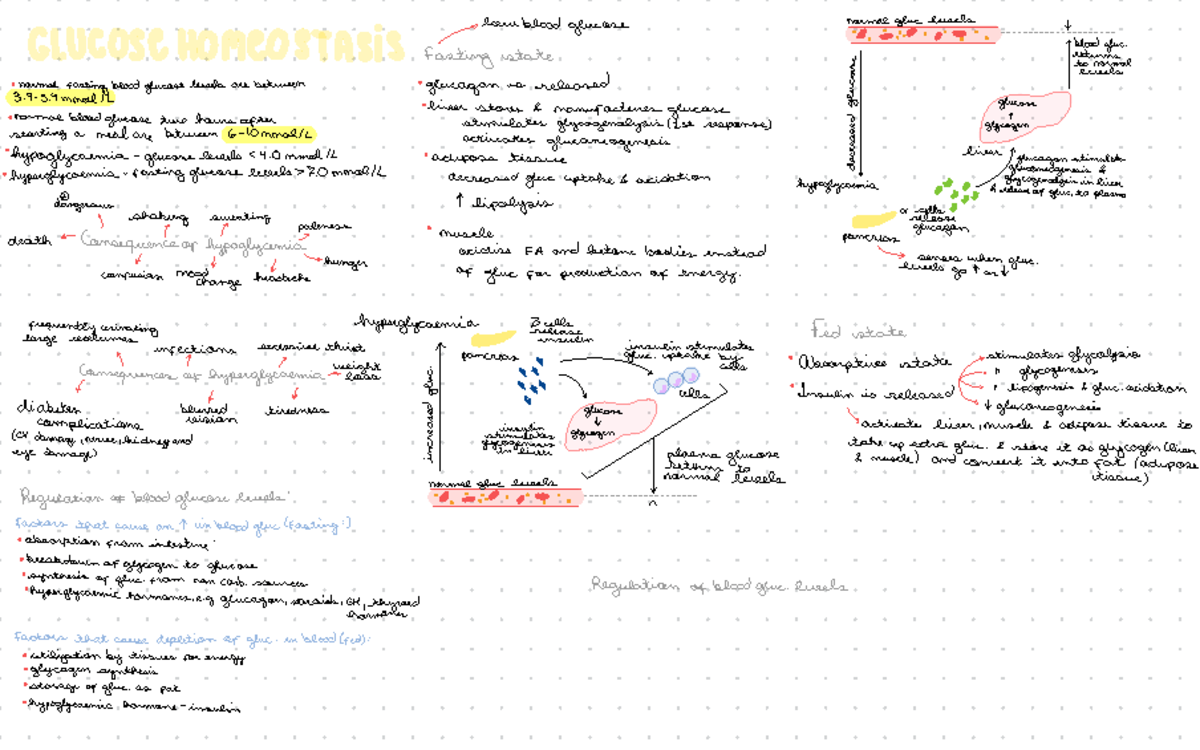 GLUCOSE HOMEOSTASIS
• normal fasting blood glucose levels are between
3.9-5.9 mmol/L
• normal blood glucose two hours after
starting a meal are between 6-10 mmol/L
• hypoglycaemia - glucose levels < 4.0 mmol/L
• hyperglycaemia - fasting glucose levels > 7.0 mmol/L
dangerous
shaking
sweating
paleness
death
Consequence of hypoglycemia
hunger
confusion
mood
change
headache
low blood glucose
Fasting state
• glucagon is released
• liver stores & manufactures glucose
stimulates glycogenolysis (1st response)
activates gluconeogenesis
• adipose tissue
decreased gluc uptake & oxidation
↑ lipolysis
• muscle
oxidise FA and ketone bodies instead
of gluc for production of energy.
normal gluc levels
decreased glucose
blood gluc.
returns
to normal
levels
glucose
↑
glycogen
liver
glucagon stimulates
gluconeogenesis &
glycogenolysis in liver
& release of gluc. to plasma
hypoglycaemia
α cells
release
glucagon
pancreas
senses when gluc.
levels go ↑ or ↓
frequently urinating
large volumes
infections
excessive thirst
weight
loss
Consequences of hyperglycaemia
diabetes
complications
(CV damage, nerve, kidney and
eye damage)
blurred
vision
tiredness
hyperglycaemia
pancreas
β cells
release
insulin
insulin stimulates
gluc. uptake by
cells
cells
increased gluc.
glucose
↓
glycogen
insulin
stimulates
glycogenesis
in liver
plasma glucose
returns to
normal levels
normal gluc levels
n
Fed state
• Absorptive state
• Insulin is released
stimulates glycolysis
" glycogenesis
" lipogenesis & gluc. oxidation
↓ gluconeogenesis
activate liver, muscle & adipose tissue to
take up extra gluc. & store it as glycogen (liver
& muscle) and convert it into fat (adipose
tissue)
Regulation of blood glucose levels:
Factors that cause an ↑ in blood gluc (fasting:)
• absorption from intestine
• breakdown of glycogen to glucose
• synthesis of gluc. from non carb. sources
• hyperglycaemic hormones, e.g glucagon, steroids, GH, thyroid
hormones
Factors that cause depletion of gluc. in blood (fed):
• utilization by tissues for energy
• glycogen synthesis
• storage of gluc. as fat
• hypoglycaemic hormone - insulin
Regulation of blood gluc levels.